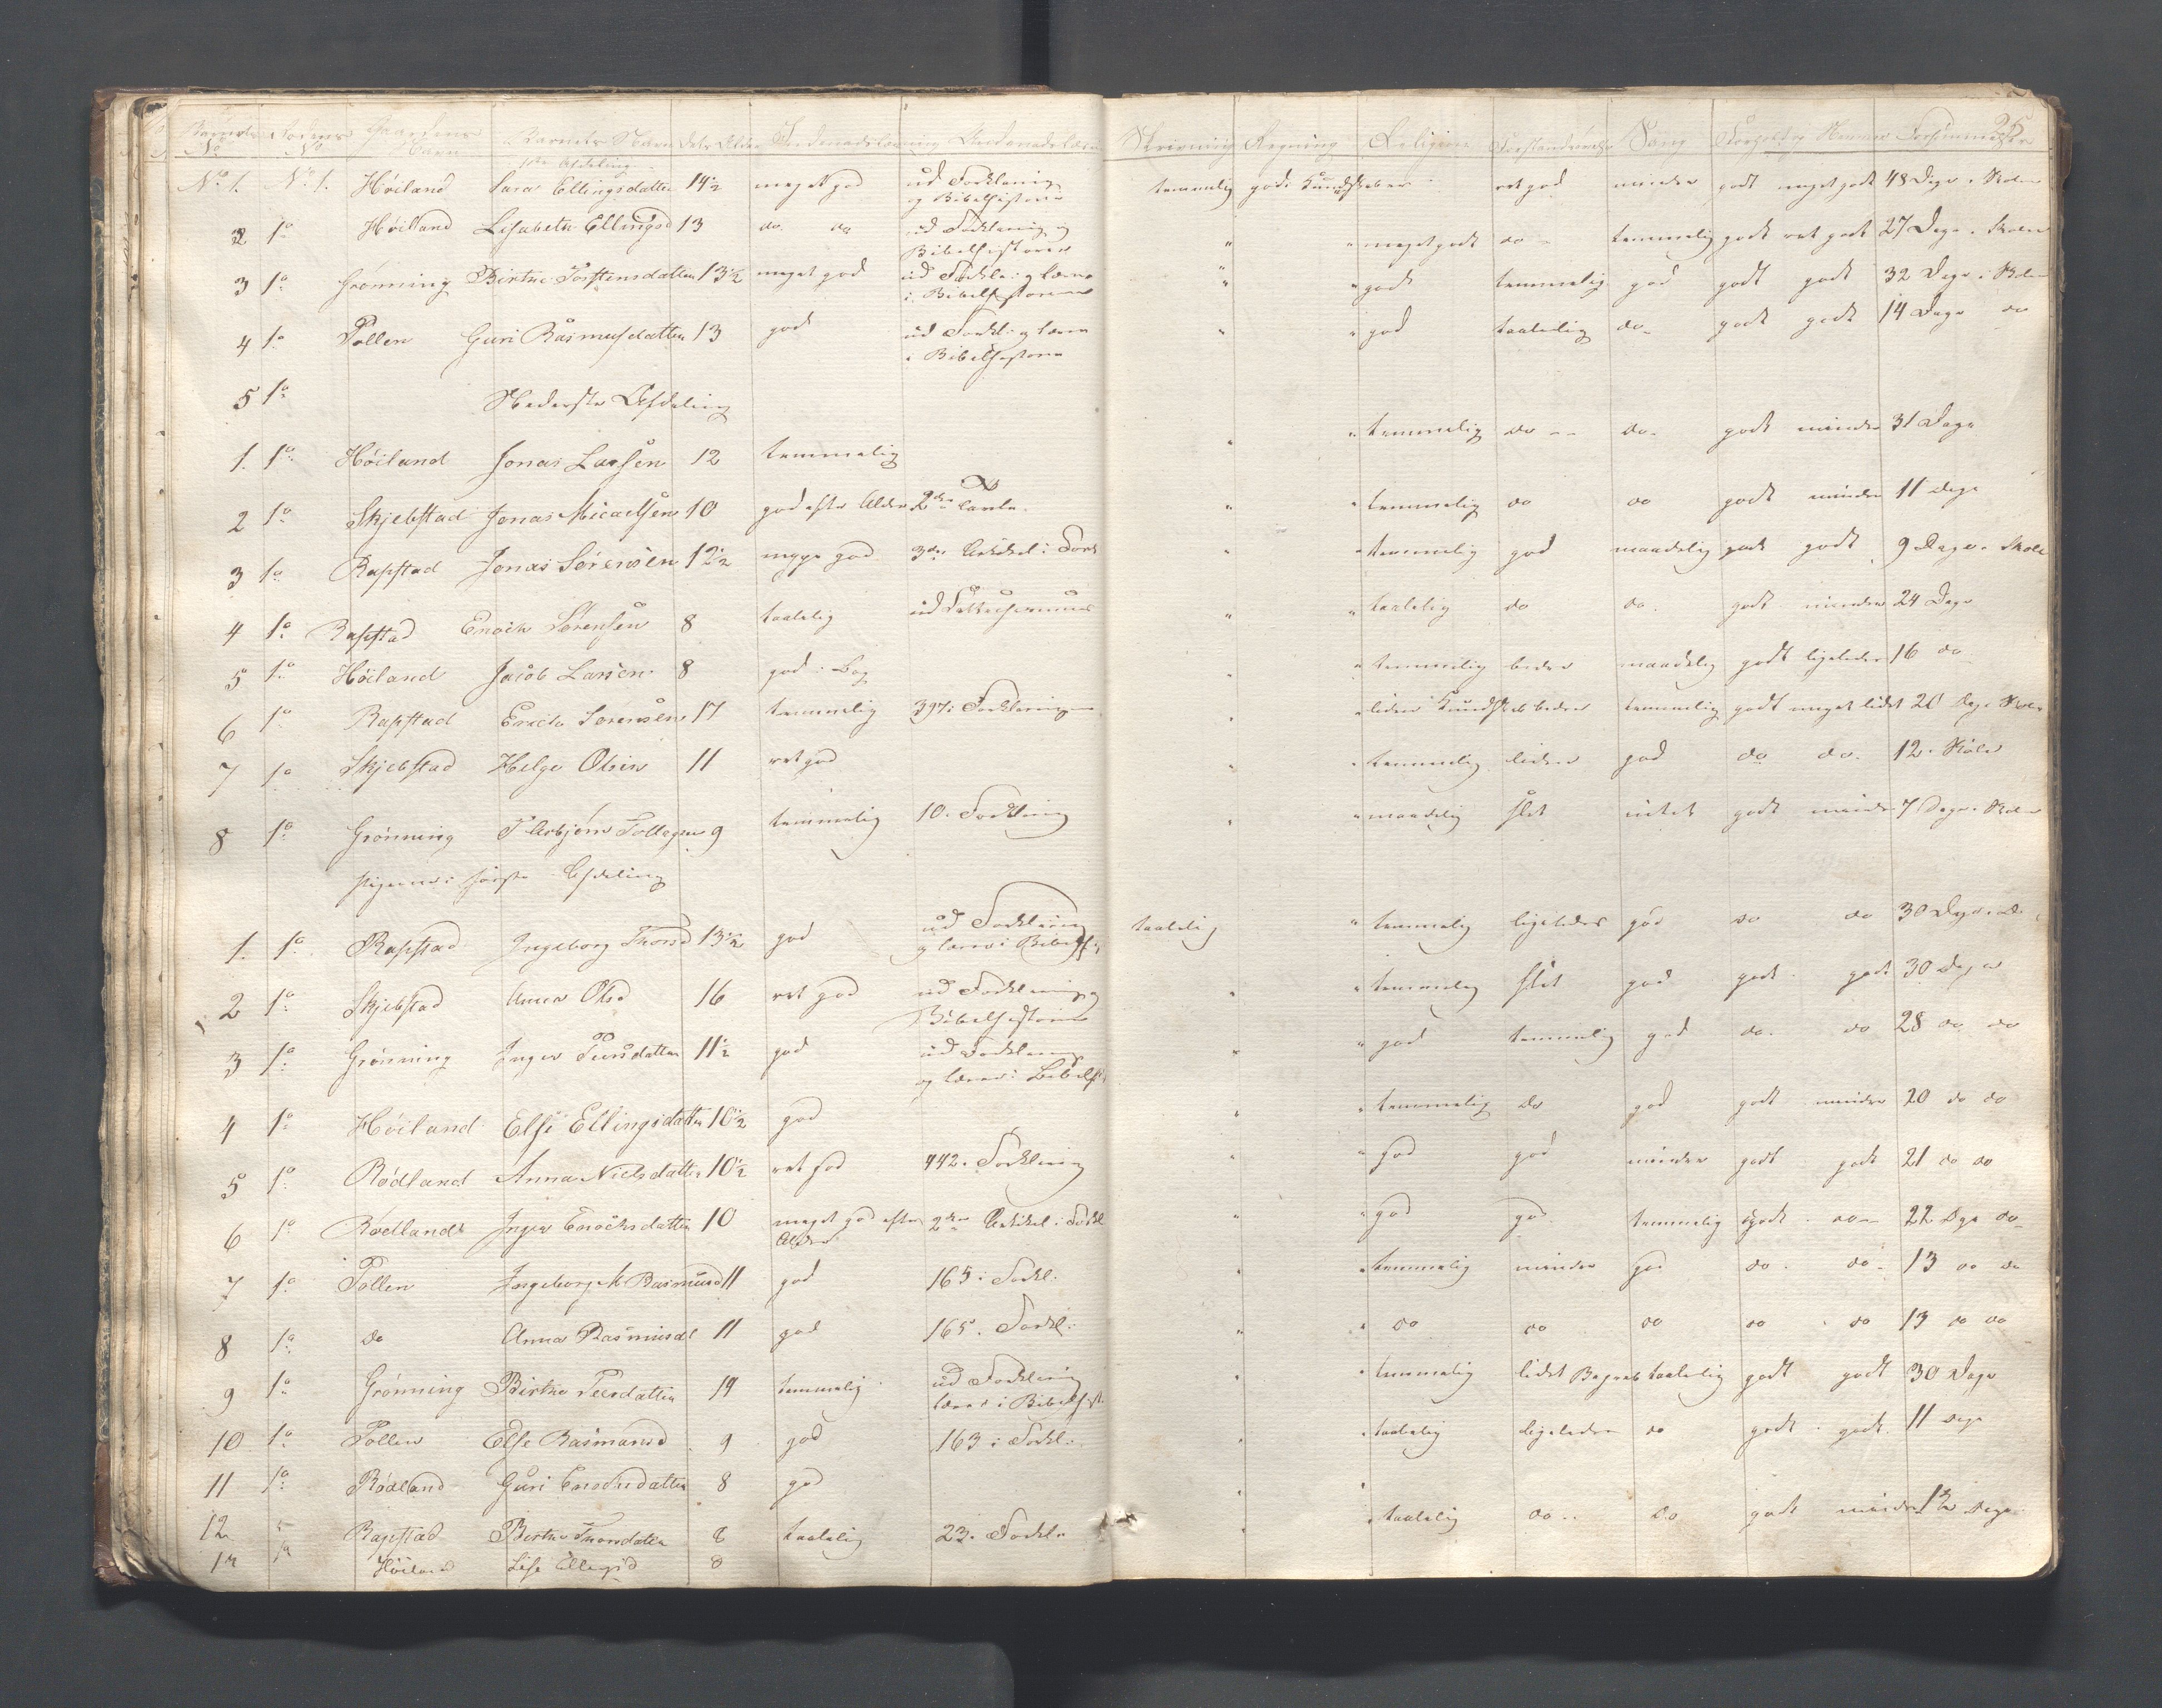 Barnets Rodens Gaardens Barnets Navn Dets Alder Indenadslæsning Udenadslæsn Skrivning Regning Religion Forstandsevne Sang Forhold og Nemme Forsømmelser
No No Navn
1ste Afdeling
No 1. No 1. Høiland Sara Ellingsdatter 14½ meget god ud Forklaring og Bibelhistorie temmelig gode Kundskaber ret god mindre godt meget godt 48 Dage i Skolen
2 1o Høiland Lisabeth Ellingsd 13 do do ud Forklaring og Bibelhistorien " " meget godt do temmelig godt ret godt 27 Dage i Skolen
3 1o Grønning Birthe Torstensdatter 13½ meget god ud Forkla: og læser i Bibelhistorien " " godt temmelig god godt godt 32 Dage i Skolen
4 1o Tollen Guri Rasmusdatter 13 god ud Forkl: og læser i Bibelhistorie " " god taalelig do godt godt 14 Dage do
5 1o Nederste Afdeling
1. 1o Høiland Jonas Larsen 12 temmelig " " temmelig do do godt mindre 31 Dage
2 1o Skjebstad Jonas Micaelsen 10 god efter Alder 2den " " temmelig do do godt mindre 11 Dage
3 1o Rapstad Jonas Sørensen 12½ god 3die Artikel i Fork " " temmelig god maadelig godt godt 9 Dage i Skole
4 1o Rapstad Enoch Sørensen 8 taalelig " " taalelig do do godt mindre 24 Dage
5 1o Høiland Jacob Larsen 8 god i Bog " " temmelig bedre maadelig godt ligeledes 16 do
6 1o Rapstad Erich Sørensen 17 temmelig 397 i Forklaringen " " liden Kundskab bedre temmelig godt meget lidet 20 Dage Skolen
7 1o Skjebstad Helge Olsen 11 ret god " " temmelig liden god do do 12 i Skolen
8 1o Grønning Asbjørn 9 temmelig 10 i Forklaring " " maadelig slet intet godt mindre 7 Dage i Skolen
Pigerne i første Afdeling
1. 1o Rapstad Ingeborg Thorsd 13½ god ud Forklaring og læser i Bibelh taalelig " temmelig ligeledes god do do 30 Dage
2 1o Skjebstad Anna Olsd 16 ret god ud Forklaring og Bibelhistorie " " temmelig slet god godt godt 30 Dage
3 1o Grønning Inger Tursdatter 11½ god ud Forklaring og læser i Bibelh " " god temmelig god do do 28 do do
4 1o Høiland Else Ellingsdatter 10½ god " " temmelig do god godt mindre 20 do do
5 1o Rødland Anna Nielsdatter 10½ ret god 442 i Forklaring " " god god mindre godt godt 21 do do
6 1o Rødland Inger Enochsdatter 10 meget god efter Alder 2den Artikel i Forkl " " god god temmelig godt do 22 Dage do
7 1o Tollen Ingeborg M Rasmusd 11 god 165 i Forkl: " " temmelig mindre god do do 13 do do
8 1o do Anna Rasmusd 11 god 165 i Forkl: " " do do do do do 13 do do
9 1o Grønning Birthe Tursdatter 14 temmelig ud Forklaring læser i Bibelhist " " temmelig lidet Begreb taalelig godt godt 30 Dage
10 1o Tollen Else Rasmusd 9 god 163 i Forkl: " " taalelig ligeledes do godt godt 11 Dage
11 1o Rødland Guri Enochsdatter 8 god " "
12 1o Rapstad Birthe Thorsdatter 8 taalelig 23 i Forkla " " taalelig do do godt mindre Dage
1o Høiland Lise Ellingsd 8